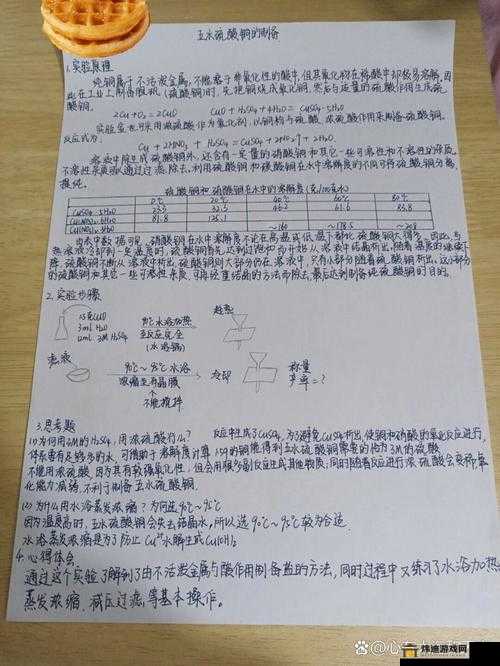 五水硫酸铜的制备
1.实验原理
纯铜属于不活泼金属,不能溶于非氧化性的酸中,但其氧化物在稀酸中却极易溶解,因
此在工业上制备胆矾(硫酸铜)时,先把铜烧成氧化铜,然后与适量的硫酸作用生成硫
酸铜。
2Cu+O₂=2CuO CuO+H₂SO₄+4H₂O=CuSO₄·5H₂O
实验室也可采用浓硝酸作为氧化剂,以铜构与硫酸、浓硝酸作用来制备硫酸铜。
反应式为:
Cu+2HNO₃+H₂SO₄=CuSO₄+2NO₂↑+2H₂O
溶液中除生成硫酸铜外,还含有一定量的硝酸铜和其它一些可溶性和不溶性的杂质。
不溶性杂质可通过过滤除去,利用硫酸铜和硝酸铜在水中溶解度的不同可将硫酸铜分离
提纯。
硫酸铜和硝酸铜在水中的溶解度(克/100克水)
0℃ 20℃ 40℃ 60℃ 80℃
CuSO₄·5H₂O 32.3 46.2 61.6 83.8
81.8 125.1
~160 ~178.5 ~208
由表中数据可见,硝酸铜在水中溶解度不论在高温或低温下都比硫酸铜大得多。因此,当
热溶液冷却到一定温度时,硫酸铜首先达到过饱和而开始从溶液中结晶析出,随着温度的继续下
降,硫酸铜不断从溶液中析出,硝酸铜则大部分仍在溶液中,只有小部分随着硫酸铜析出。这小部分
的硝酸铜和其他一些可溶性杂质,可再经重结晶的方法而除去,最后达到制备纯硫酸铜的目的。
2.实验步骤
1.5克Cu
3ml H₂O
12ml 3M H₂SO₄
水浴加热
至反应完全
(水浴锅)
趁热
滤液
90℃~95℃水浴
浓缩至有晶膜
不能搅拌
冷却
称量
产率=?
3.思考题
(1)为何用3M的H₂SO₄,用浓硫酸行么? 反应中生成了CuSO₄,为了避免CuSO₄析出,使铜和硝酸的氧化反应进行,
体系需有足够多的水,可借助于溶解度计算 1.5g的铜能得到五水硫酸铜需要的恰为3M的硫酸
不能用浓硫酸因为其有较强氧化性,但会用很多副反应生成其他物质;同时随着反应进行浓硫酸会变稀,氧
化能力减弱,不利于制备五水硫酸铜
(2)为什么用水浴蒸发浓缩?为何选90℃~95℃
因为温度高时,五水硫酸铜会失去结晶水,所以选90℃~95℃较为合适
水浴蒸发浓缩是为了防止Cu²⁺水解生成Cu(OH)₂
4.心得体会
通过这个实验了解到了由不活泼金属与酸作用制备盐的方法,同时过程中又练习了水浴加热
蒸发浓缩、减压过滤等基本操作。
炜迪游戏网